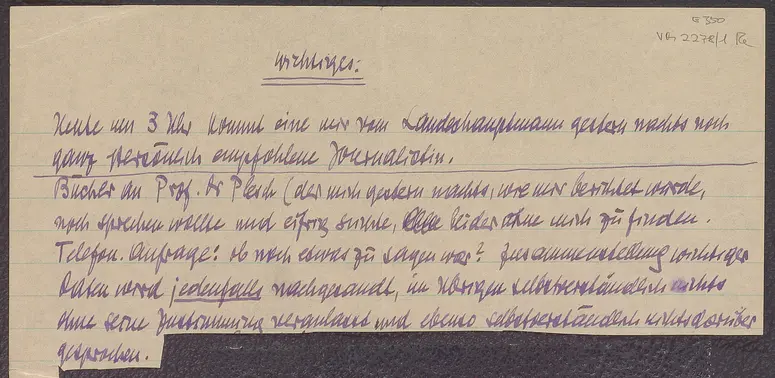 G 350
VBs 2278/1 Re
Wichtiges:
Heute um 3 Uhr kommt eine mir vom Landeshauptmann gestern nachts noch
ganz persönlich empfohlene Journalistin.
Bücher an Prof. Dr Plesch (der mich gestern nachts, wie mir berichtet wurde,
noch sprechen wollte und eifrig suchte, leider ohne mich zu finden.
Telefon. Anfrage: ob noch etwas zu sagen war? Zusammenstellung wichtiger
Daten wird jedenfalls nachgesandt, im Übrigen selbstverständlich nichts
ohne seine Zustimmung veranlasst und ebenso selbstverständlich nichts darüber
gesprochen.